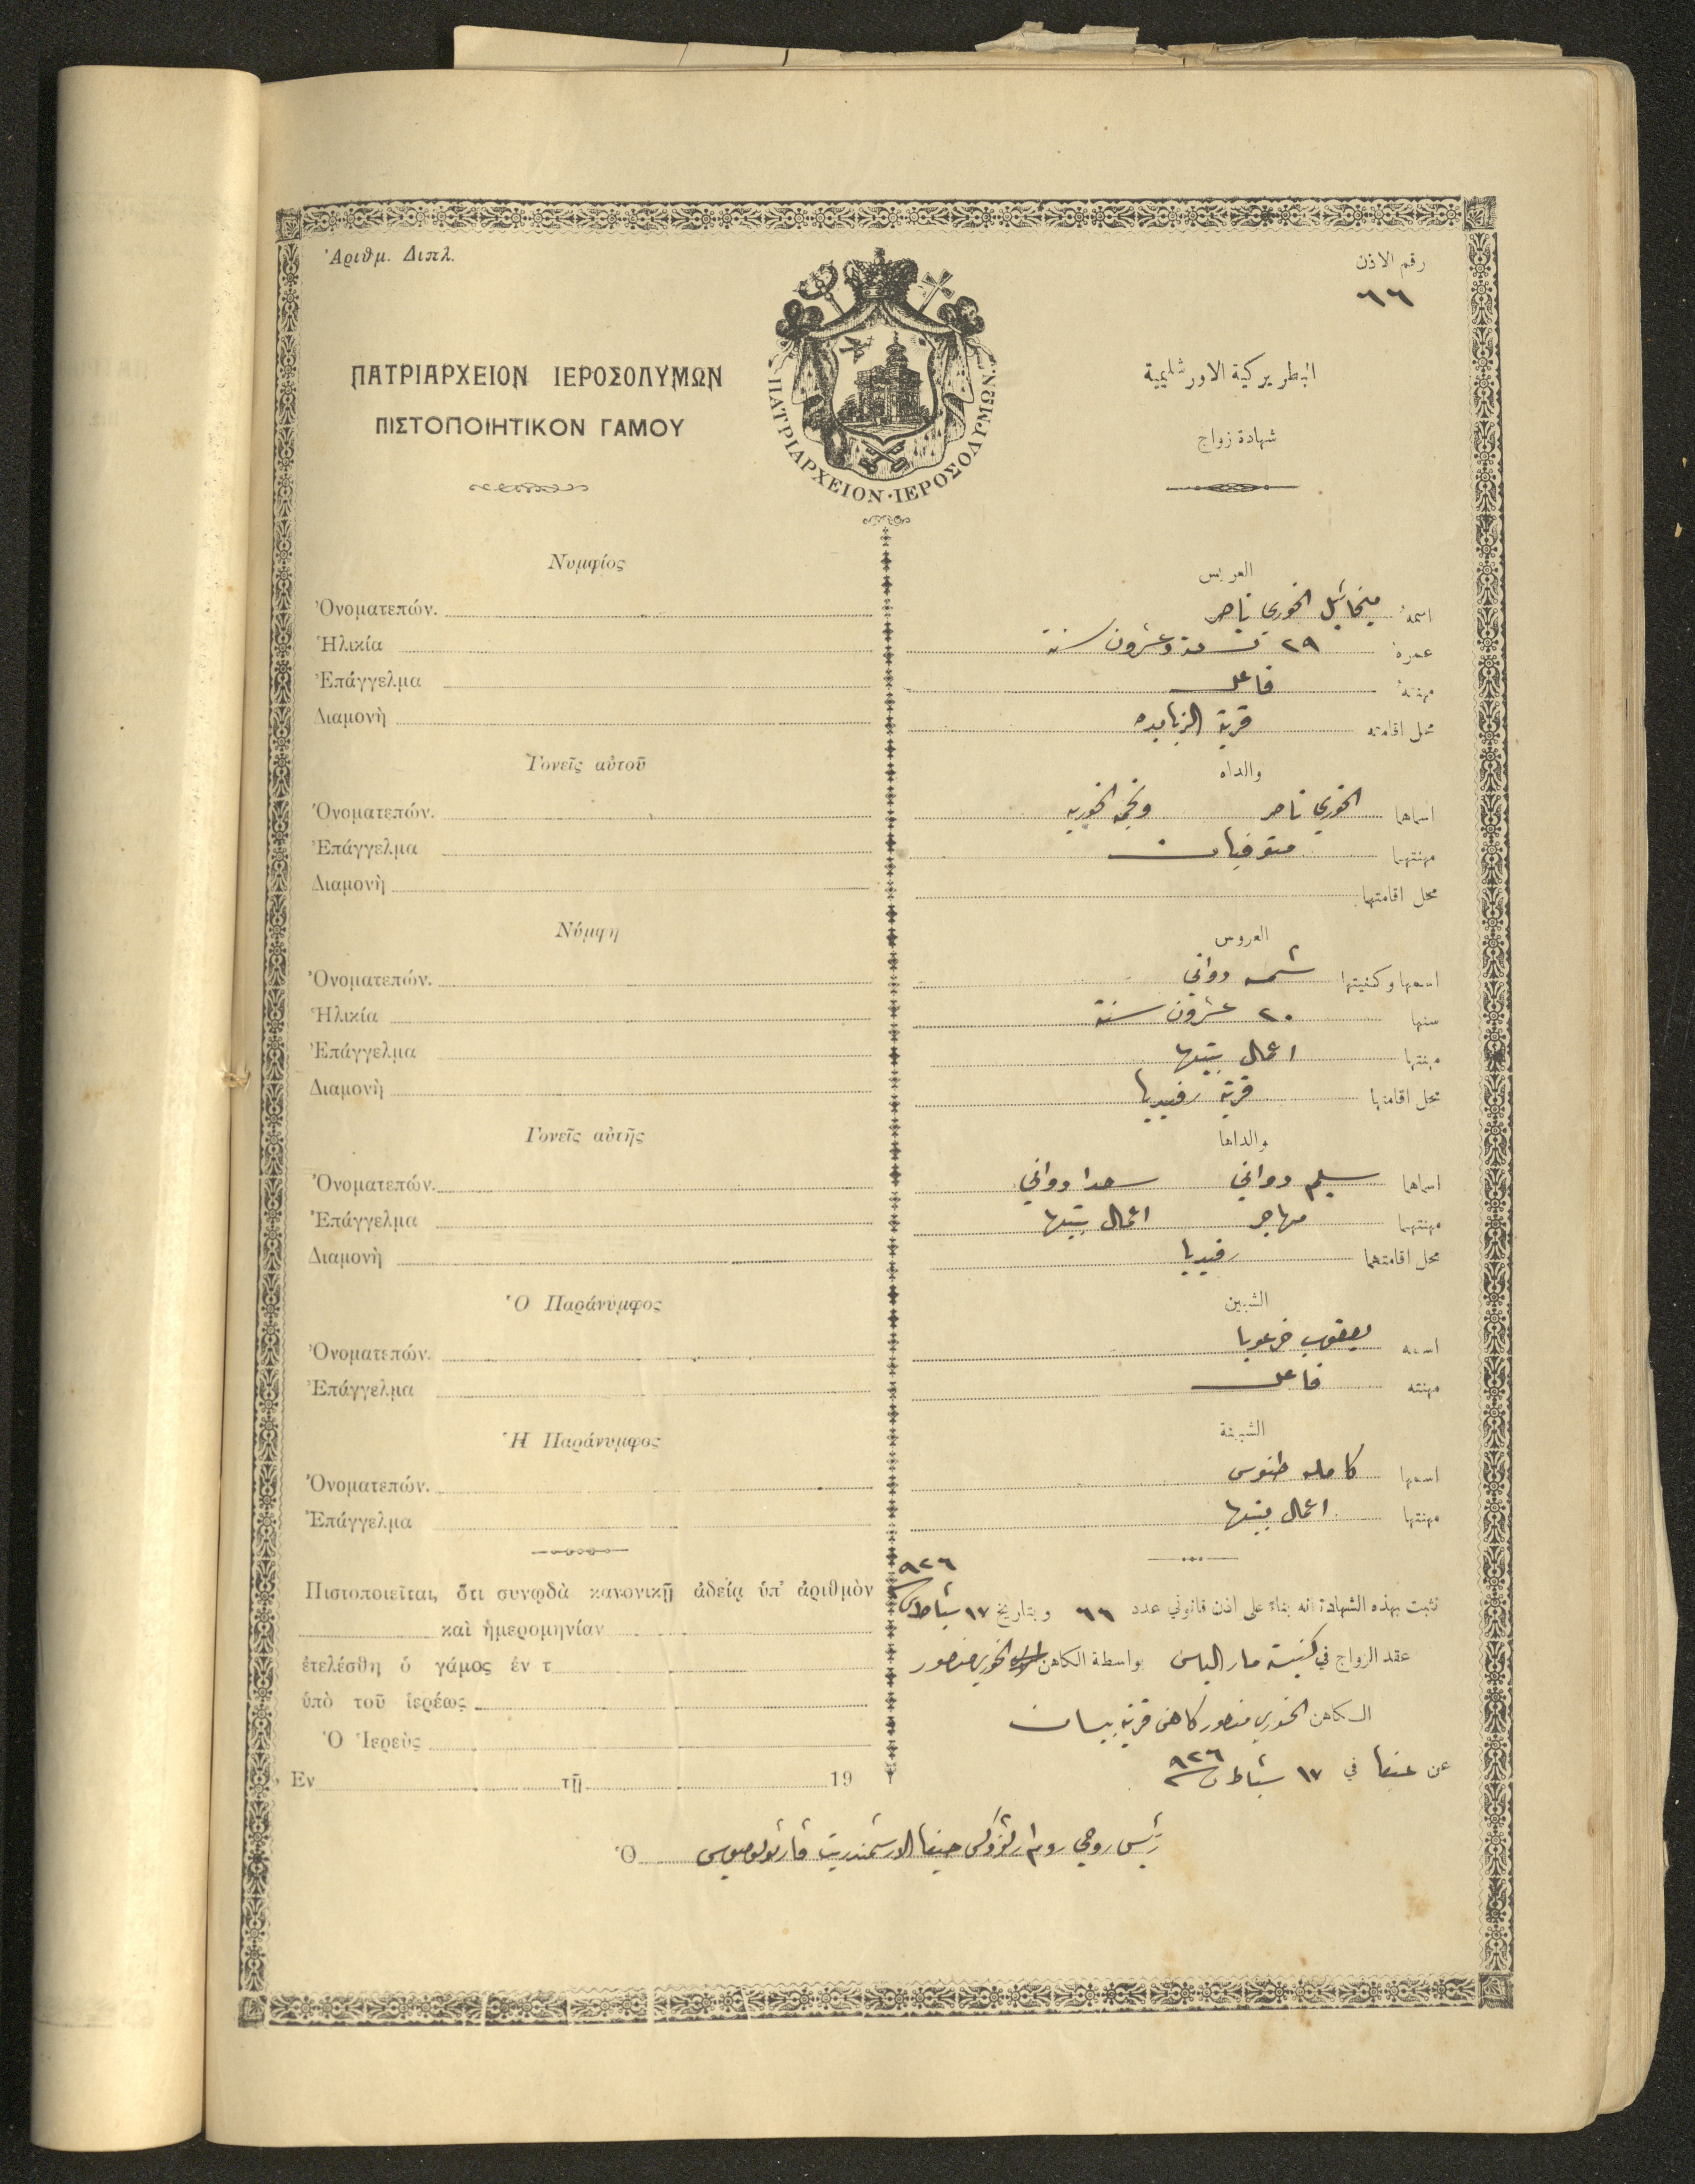 Ἀριθμ. Διπλ.
رقم الاذن
٦٦
ΠΑΤΡΙΑΡΧΕΙΟΝ ΙΕΡΟΣΟΛΥΜΩΝ
ΠΙΣΤΟΠΟΙΗΤΙΚΟΝ ΓΑΜΟΥ
ΠΑΤΡΙΑΡΧΕΙΟΝ·ΙΕΡΟΣΟΛΥΜΩΝ
البطريركية الاورشليمية
شهادة زواج
Νυμφίος
Ὀνοματεπών.
Ἡλικία
Ἐπάγγελμα
Διαμονὴ
Γονεῖς αὐτοῦ
Ὀνοματεπών.
Ἐπάγγελμα
Διαμονὴ
Νύμφη
Ὀνοματεπών.
Ἡλικία
Ἐπάγγελμα
Διαμονὴ
Γονεῖς αὐτῆς
Ὀνοματεπών.
Ἐπάγγελμα
Διαμονὴ
Ὁ Παράνυμφος
Ὀνοματεπών.
Ἐπάγγελμα
Ἡ Παράνυμφος
Ὀνοματεπών.
Ἐπάγγελμα
Πιστοποιεῖται, ὅτι συνῳδὰ κανονικῇ ἀδείᾳ ὑπ' ἀριθμὸν
καὶ ἡμερομηνίαν
ἐτελέσθη ὁ γάμος ἐν τ
ὑπὸ τοῦ ἱερέως
Ὁ Ἱερεὺς
Ἐν τῇ 19
العريس
اسمهُ ميخائيل الخوري ناصر
عمره ٢٩ تسعة وعشرون سنة
مهنتهُ فاعل
محل اقامته قرية الزبابده
والداه
اسماهما الخوري ناصر ونجمه الخوريه
مهنتهما متوفيان
محل اقامتهما
العروس
اسمها وكنيتها شمسه دواني
سنها ٢٠ عشرون سنة
مهنتها اعمال بيتها
محل اقامتها قرية رفيديا
والداها
اسماهما سليم دواني سعدا دواني
مهنتهما مهاجر اعمال بيتها
محل اقامتهما رفيديا
الشبين
اسمه يعقوب
مهنته فاعل
الشبينة
اسمها كامله طنوس
مهنتها اعمال بيتها
نثبت بهذه الشهادة انه بناءً على اذن قانوني عدد ٦٦ وبتاريخ ١٧ شباط سنة ٩٢٦
عقد الزواج في كنيسة مار الياس بواسطة الكاهن الخوري منصور
الكاهن الخوري منصور كاهن قرية بيسان
عن حيفا في ١٧ شباط سنة ٩٢٦
Ὁ رئيس روحي روم ارثوذكس حيفا الارشمندريت